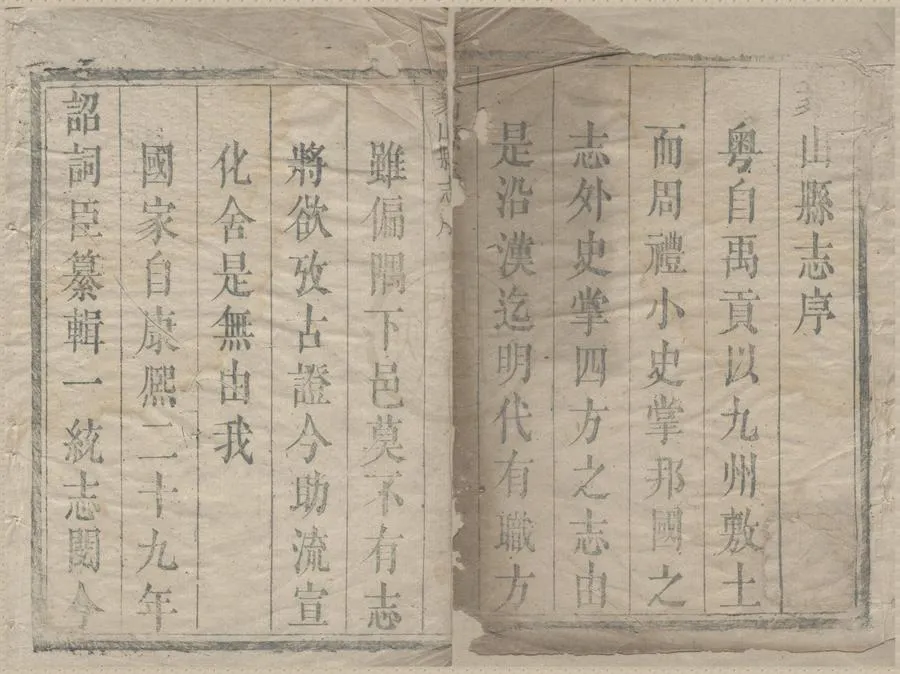 山縣志序
粵自禹貢以九州敷土
而周禮小史掌邦國之
志外史掌四方之志由
是沿漢迄明代有職方
山縣志
雖偏隅下邑莫不有志
將欲攷古證今助流宣
化舍是無由我
國家自康熙二十九年
詔詞臣纂輯一統志閱今